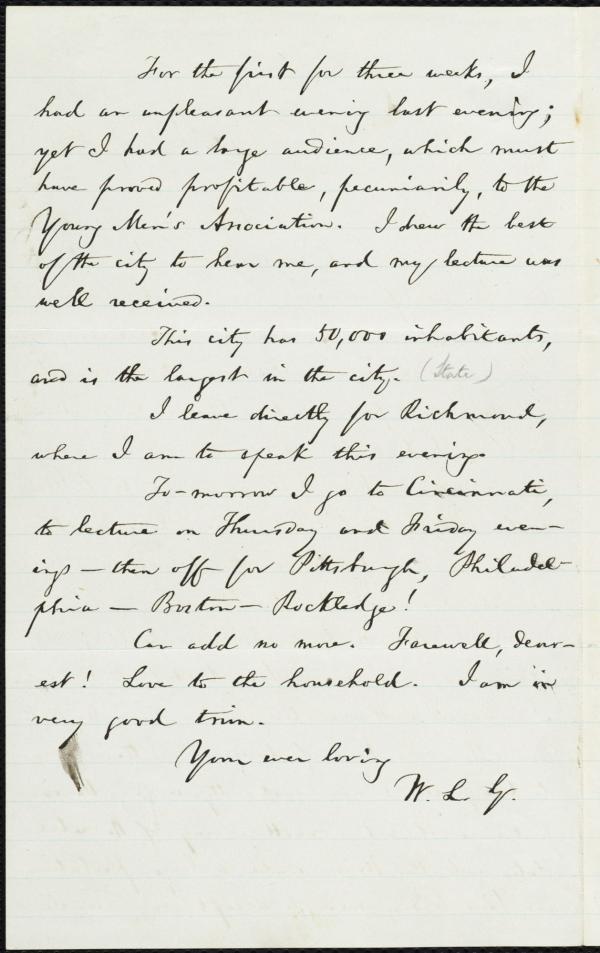 For the first for three weeks, I
had an unpleasant evening last evening;
yet I had a large audience, which must
have proved profitable, pecuniarily, to the
Young Men's Association. I drew the best
of the city to hear me, and my lecture was
well received.
This city has 50,000 inhabitants,
and is the largest in the city. (State)
I leave directly for Richmond,
where I am to speak this evening.
To-morrow I go to Cincinnati,
to lecture on Thursday and Friday even-
ings — then off for Pittsburgh, Philadel-
phia — Boston — Rockledge!
Can add no more. Farewell, dear-
est! Love to the household. I am in
very good trim.
Your ever loving
W. L. G.